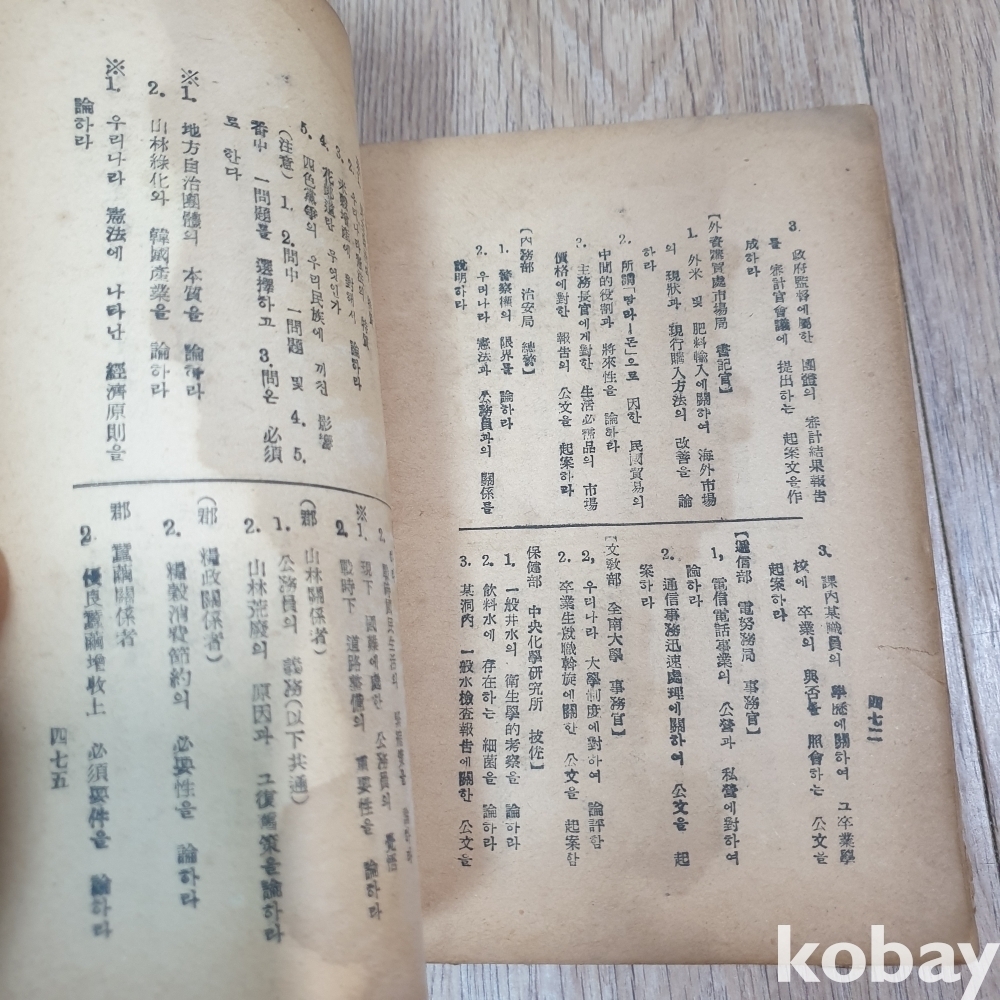 四七二
3. 政府監督에屬한 團體의 審計結果報告
를 審計官會議에 提出하는 起案文을作
成하라
【外資購買處市場局 書記官】
1. 外米 및 肥料輸入에關하여 海外市場
의 現狀과 現行購入方法의 改善을 論
하라
2. 所謂「땅라ー몬」으로 因한 民國貿易의
中間的役割과 將來性을 論하라
3. 主務長官에게對한 生活必需品의 市場
價格에對한 報告의 公文을 起案하라
【內務部 治安局 總警】
1. 警察權의 限界를 論하라
2. 우리나라 憲法과 公務員과의 關係를
說明하라
3. 課內某職員의 學歷에關하여 그卒業學
校에 卒業의 與否를 照會하는 公文을
起案하라
【遞信部 電努務局 事務官】
1, 電信電話事業의 公營과 私營에對하여
論하라
2. 通信事務迅速處理에關하여 公文을 起
案하라
【文敎部 全南大學 事務官】
2, 우리나라 大學制度에對하여 論評함
2. 卒業生就職斡旋에關한 公文을 起案함
保健部 中央化學硏究所 技佐】
1, 一般井水의 衛生學的考察을 論하라
2. 飮料水에 存在하는 細菌을 論하라
3. 某洞內 一般水檢査報告에關한 公文을
3. 米穀增産에 對해서 論하라
4. 花郞道란 무엇인가
5. 四色黨爭의 우리民族에 끼친 影響
(注意) 1. 2.問中 一問題 및 4. 5.
番中 一問題를 選擇하고 3.問은 必須
로 한다
※1. 地方自治團體의 本質을 論하라
2. 山林綠化와 韓國産業을 論하라
※1. 우리나라 憲法에 나타난 經濟原則을
論하라
※1. 現下 國難에處한 公務員의 覺悟
2. 戰時下 道路整備의 重要性을 論하라
(郡 山林關係者)
1. 公務員의 義務(以下共通)
2. 山林荒廢의 原因과 그復舊策을論하라
(郡 糧政關係者)
2. 糧穀消費節約의 必要性을 論하라
郡 蠶繭關係者)
2 優良蠶繭增收上 必須要件을 論하라
四七五
kobay